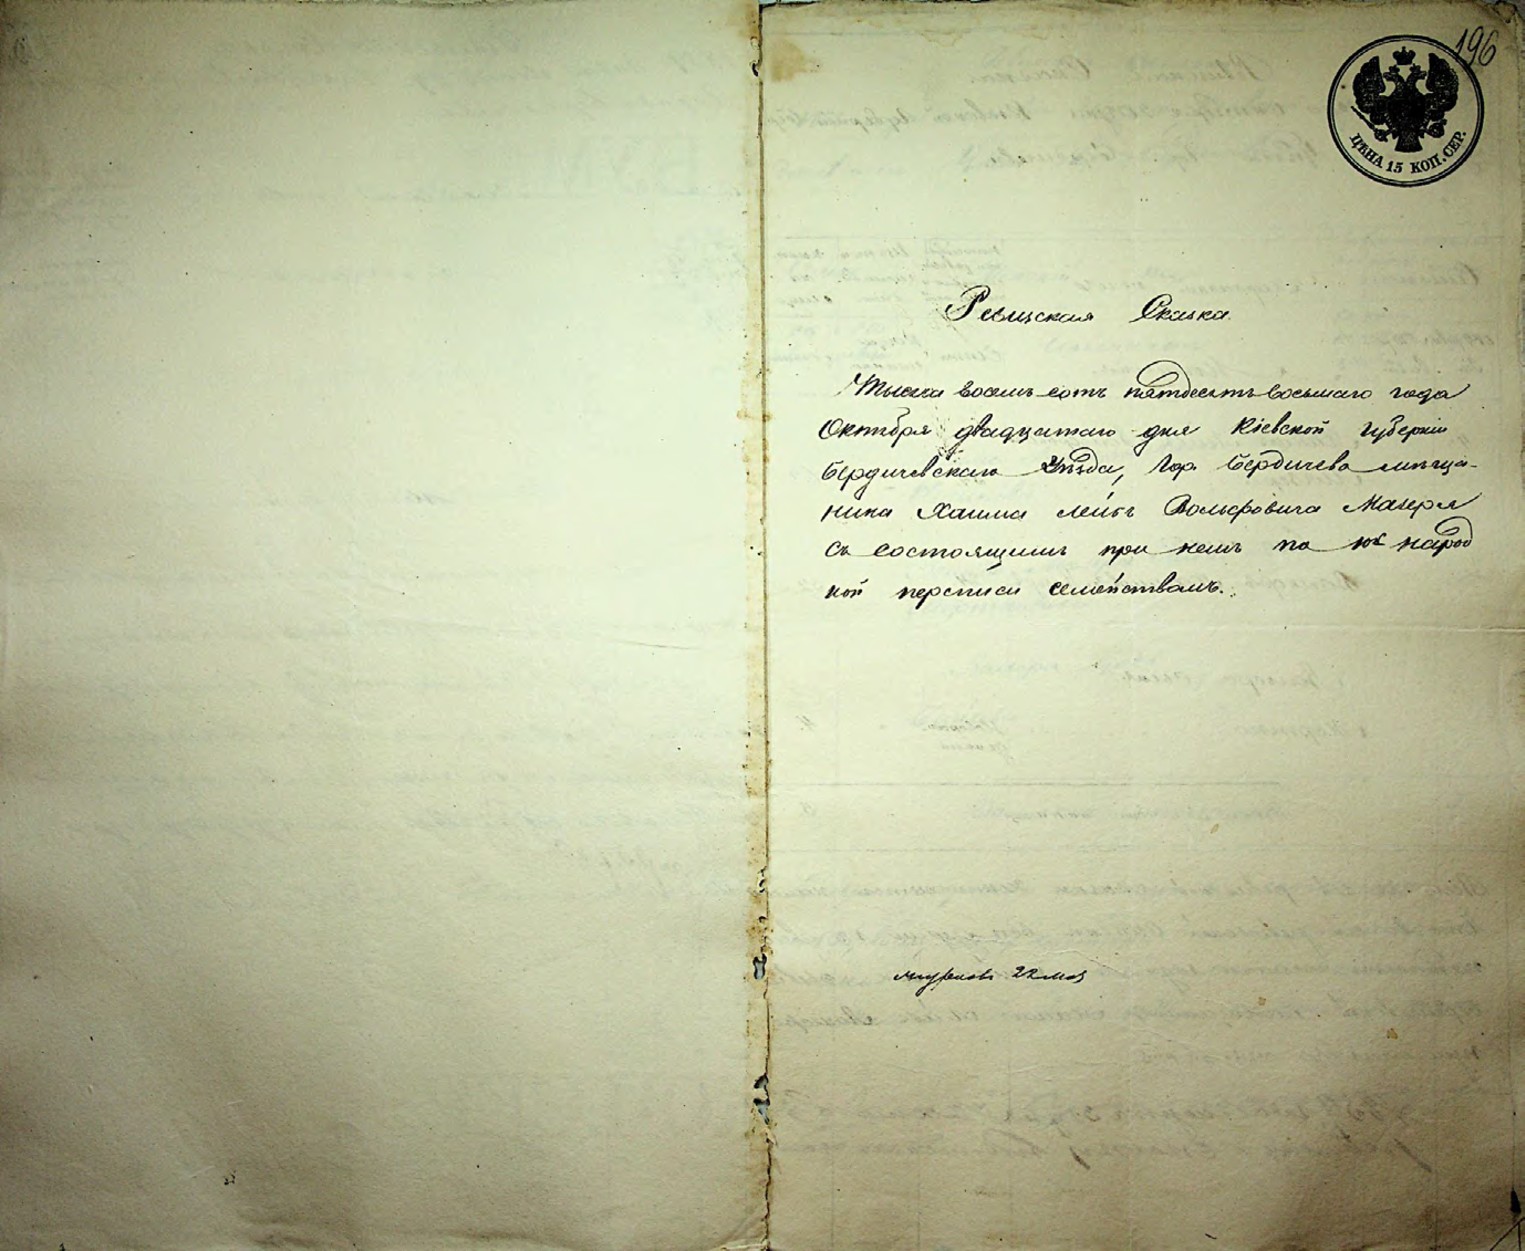 196
ЦѢНА 15 КОП. СЕР.
Ревизская Сказка
Тысяча восемь сотъ пятдесятъ восьмаго года
Октября двадцатаго дня Кіевской Губерніи
Бердичевскаго Уѣзда, Гор. Бердичева мѣща-
нина Хаима Лейбъ Вольфовича Мазера
съ состоящимъ при немъ по 10й народ
ной переписи семействомъ.